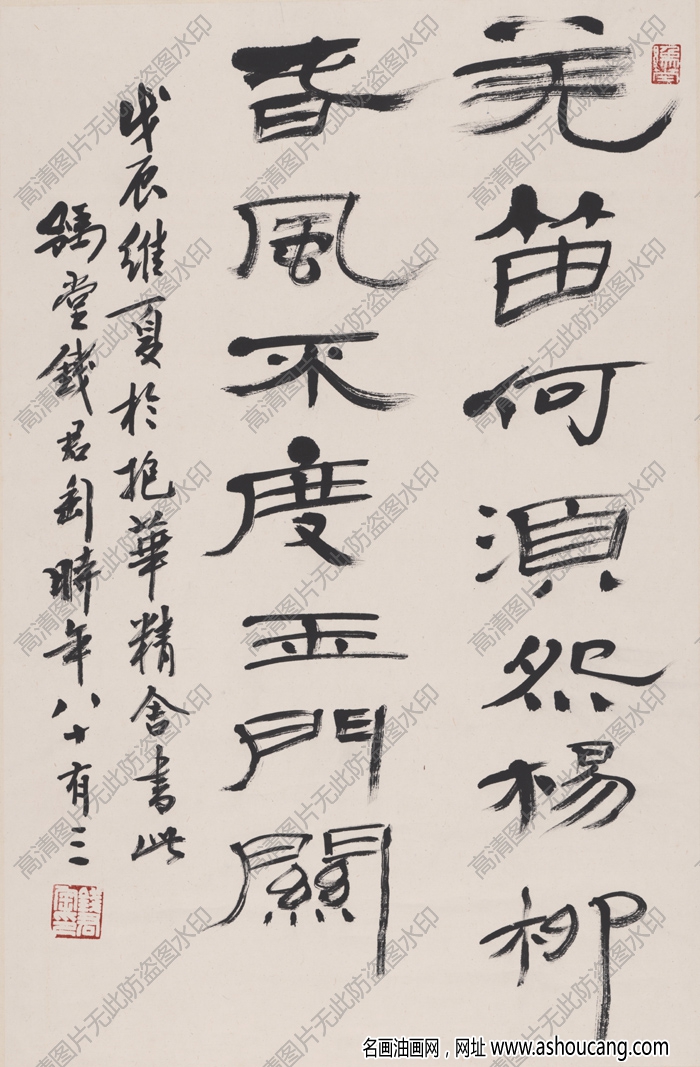 羌笛何湏怨楊柳
春風不度玉門關
戊辰維夏於抱華精舍書此
豫堂錢君匋時年八十有三
高清图片无此防盗图水印
名画油画网，网址 www.ashoucang.com